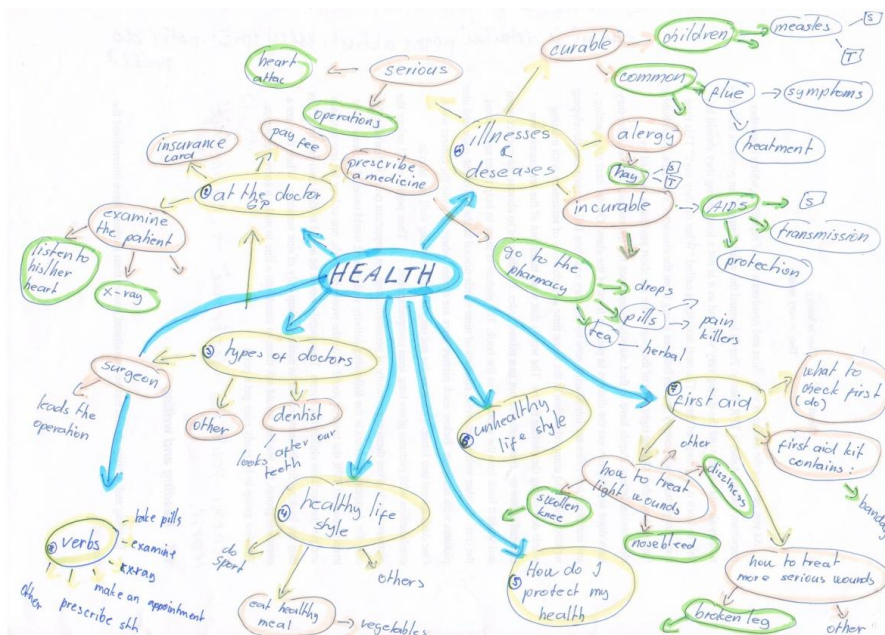 HEALTH
① illnesses
&
deseases
serious
heart
attac
operations
curable
children
measles
S
T
common
flue
symptoms
treatment
alergy
hay
S
T
incurable
AIDS
S
transmission
protection
② at the doctor
GP
insurance
card
pay
fee
prescribe
a medicine
examine
the patient
listen to
his/her
heart
x-ray
go to the
pharmacy
drops
pills
pain
killers
tea
herbal
③ types of doctors
surgeon
leads the
operation
other
dentist
looks after our
teeth
④ healthy life
style
do
sport
eat healthy
meal
vegetables
others
unhealthy
life style
⑤ How do I
protect my
health
⑦ first aid
what to
check first
(do)
first aid kit
contains:
bandag
how to treat
light wounds
other
dizziness
swollen
knee
nosebleed
how to treat
more serious wounds
broken leg
other
⑧ verbs
take pills
examine
x-ray
make an appointment
prescribe sth
other